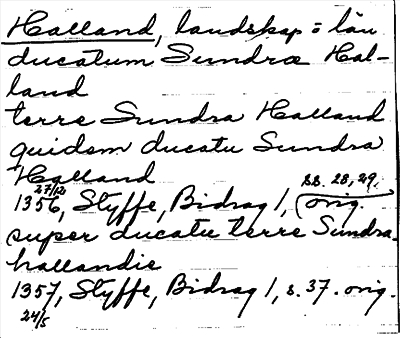 Halland, landskap o län
ducatum Sundra Hal-
land
terre Sundra Halland
quidem ducatu Sundra
Halland
27/12 ss. 28, 29.
1356, Styffe, Bidrag 1, orig.
super ducatu terre Sundra
hallandie
1357, Styffe, Bidrag 1, s. 37. orig.
24/5